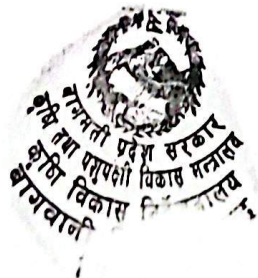 बागमती प्रदेश सरकार
कृषि तथा पशुपंक्षी विकास मन्त्रालय
कृषि विकास
बागवानी